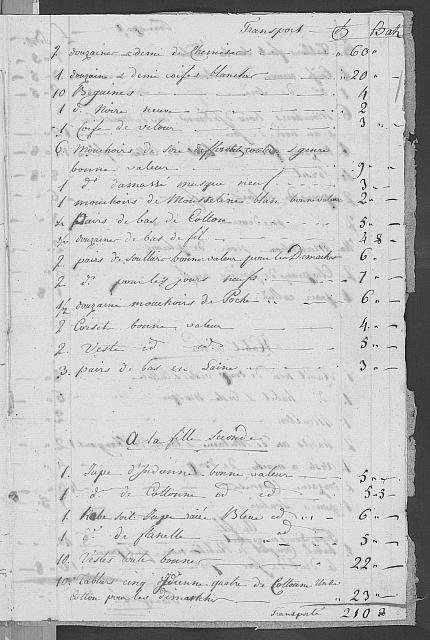 Transport — Bath
2 douzaines & demi de Chemises — 60 "
1 douzaine & demi coifes blanches — " 20 "
10 Beguines — " 4
1 d° Noire neuve — " 2
1 Coife de velour — " 3 "
6 Mouchoirs de Soie genre
bonne valeur — " 9 "
1 d° damassé musque neuf — " 3 "
1 mouchoirs de Mousseline blanc bonne valeur — 2 "
pairs de bas de Cotton — " 5 "
1/2 douzaine de bas de fil — " 4 8
2 paires de Soullier bonne valeur pour les Dimaches — 6 "
2 d° pour les jours neufs — " 7 "
1/2 douzaine mouchoirs de Poche — " 6 "
2 Corset bonne valeur — " 4 "
2 Veste id id — 5 "
3 pairs de bas en Laine — " 3 "
A la fille seconde
1 Jupe d'Indienne bonne valeur — 5 "
1 d° de Cottonne id id — 5 5
1 Robe soit Jupe raiée Bleue id — " 6 "
1 d° de flanelle " id — " 5 "
10 Vestes toute bonnes — " 22 "
10 Tabliers cinq d'Idienne quatre de Cottonne Un de
Cotton pour les dimanches — " 23 "
Transporté 210 3